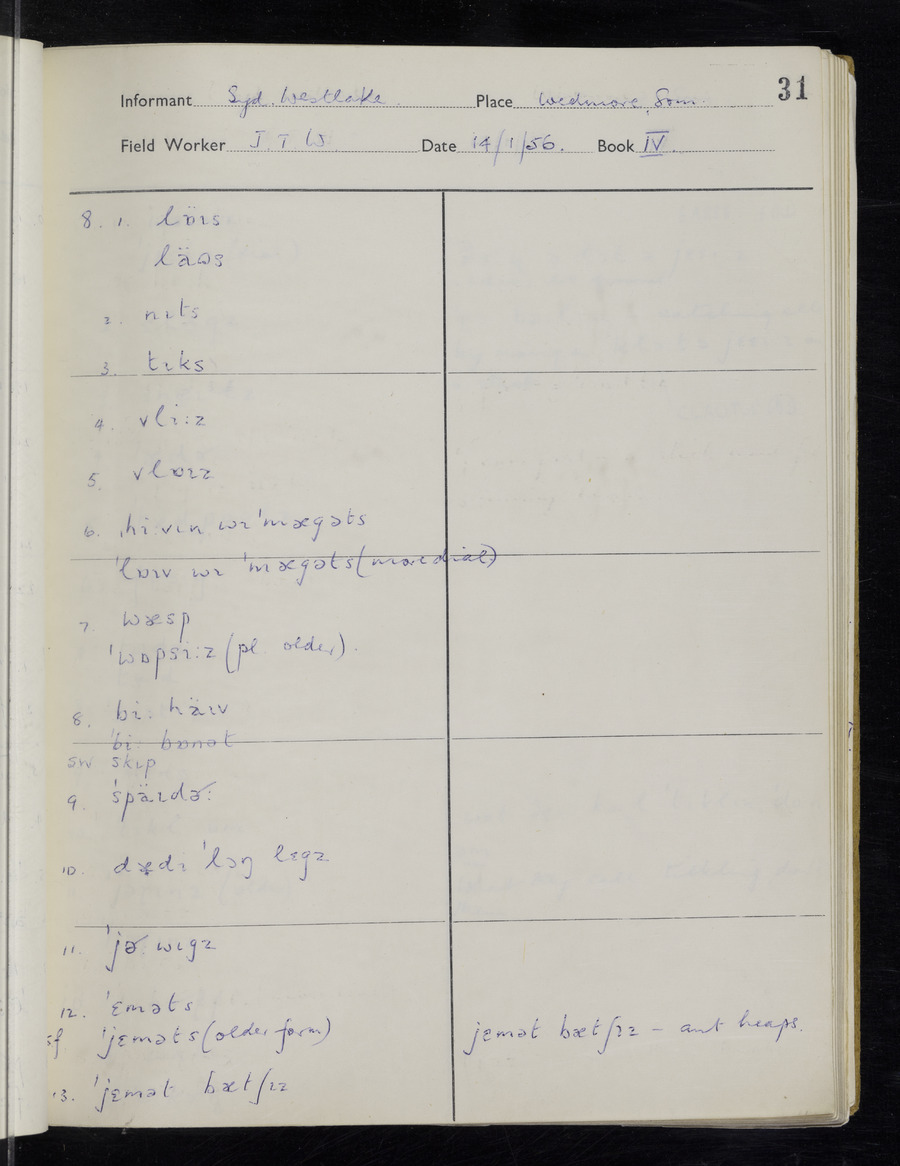 31
Informant Syd. Westlake Place Wedmore, Som.
Field Worker J. T. W. Date 14/1/56. Book IV
8. 1. lɒ̈ɪs
läʊs
2. nɪts
3. tɪks
4. vli:z
5. vlɒɪz
6. ˌhi:vɪn wɪ ˈmægəts
ˈlɒɪv wɪ ˈmægəts (more dial)
7. wæsp
ˈwɒpsi:z (pl. older).
8. bi: häɪv
ˈbi: bɒnət
SW skɪp
9. ˈspäɪdɚ:
10. dædɪ ˈlɔŋ lɛgz
11. ˈjɚ: wɪgz
12. ˈɛməts
sf ˈjɛməts (older form) jɛmət bætʃɪz – ant heaps.
13. ˈjɛmət bætʃɪz